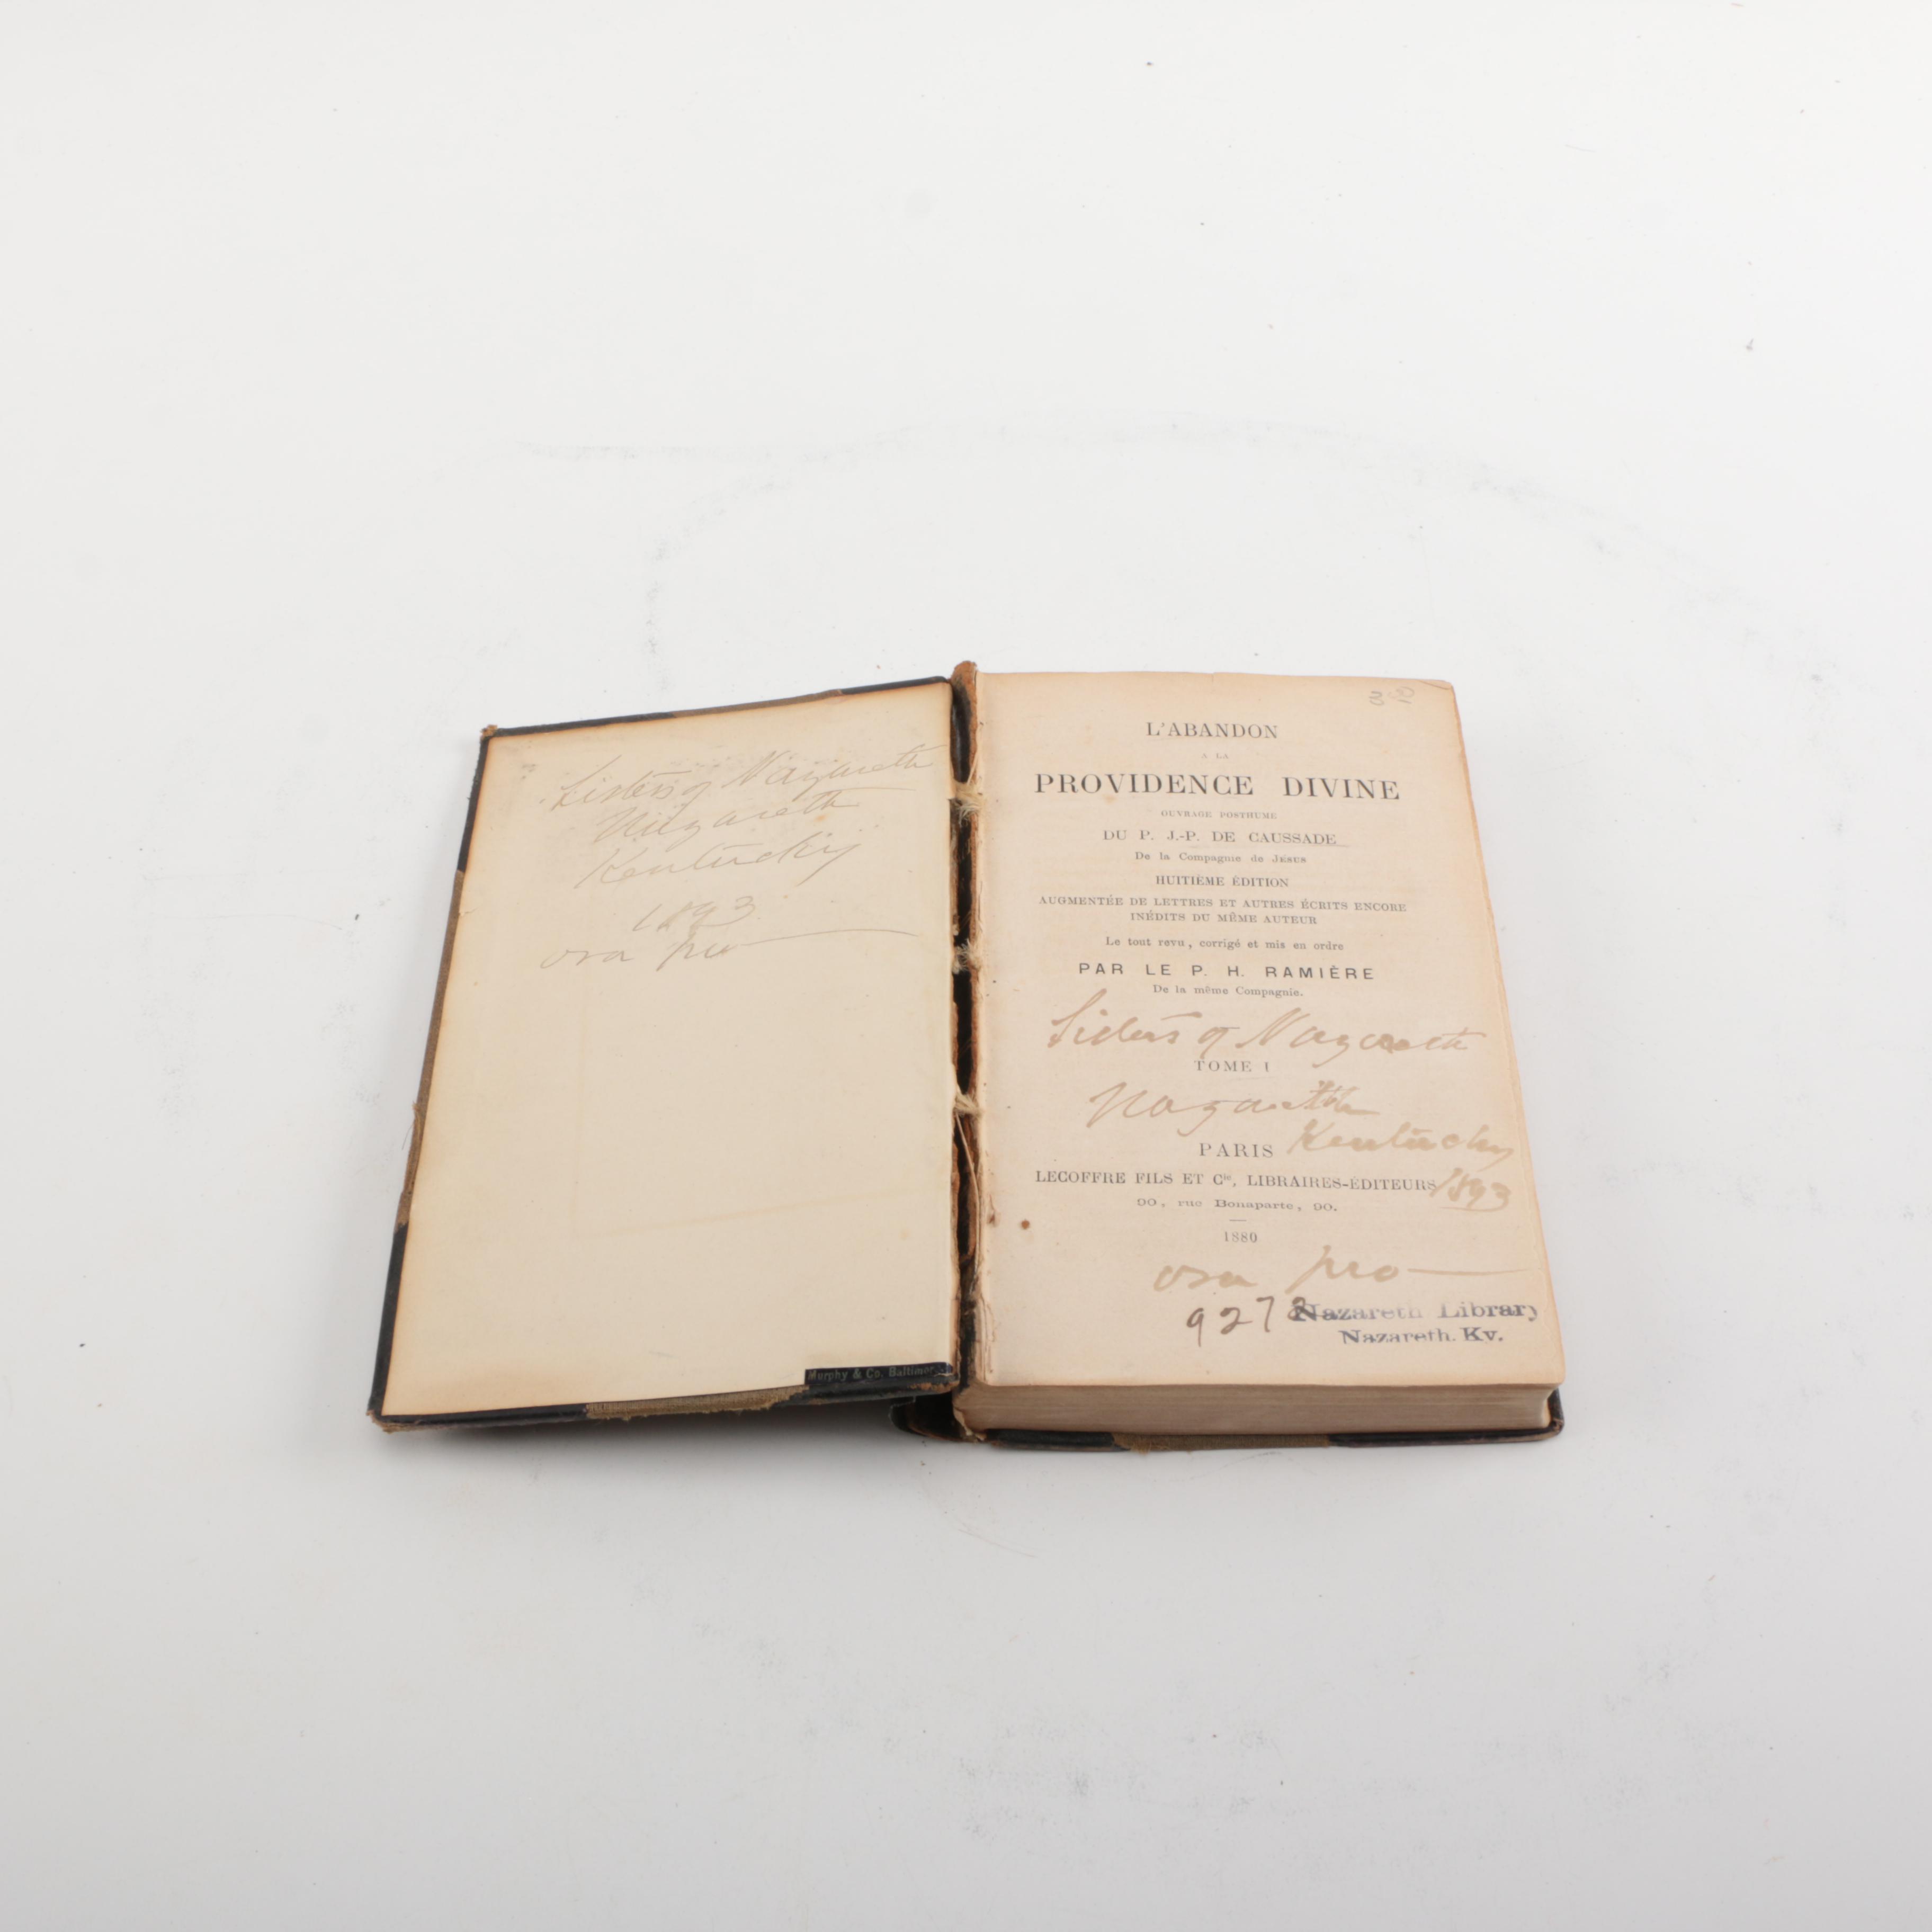 Sisters of Nazareth
Nazareth
Kentucky
1893
ora pro
Murphy & Co. Baltimore
L'ABANDON
A LA
PROVIDENCE DIVINE
OUVRAGE POSTHUME
DU P. J.-P. DE CAUSSADE
De la Compagnie de JÉSUS
HUITIÈME ÉDITION
AUGMENTÉE DE LETTRES ET AUTRES ÉCRITS ENCORE
INÉDITS DU MÊME AUTEUR
Le tout revu, corrigé et mis en ordre
PAR LE P. H. RAMIÈRE
De la même Compagnie.
Sisters of Nazareth
TOME I
Nazareth
Kentucky
PARIS
LECOFFRE FILS ET Cie, LIBRAIRES-ÉDITEURS
1893
90, rue Bonaparte, 90.
1880
ora pro
9278
Nazareth Library
Nazareth, Ky.